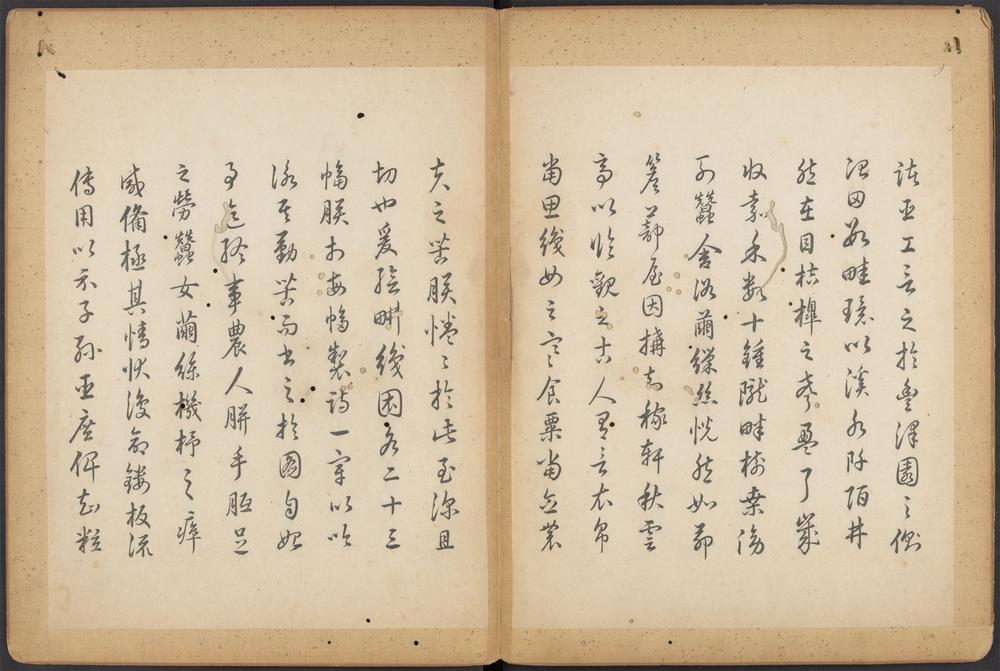 之於豐澤園之側
治田數畦環以溪水阡陌井
然在目桔槔之聲盈耳歲
收嘉禾數十鍾隴畔樹桑傍
列蠶舍浴繭繅絲恍然如茆
簷蔀屋因構知稼軒秋雲
亭以臨觀之古人有言衣帛
當思織女之寒食粟當念農
夫之苦朕惓〻於此至深且
切也爰繪畊織圖各二十三
幅朕於每幅製詩一章以吟
詠其勤苦而書之於圖自始
事迄終事農人胼手胝足
之勞蠶女繭絲機杼之瘁
咸備極其情狀復命鏤板流
傳用以示子孫臣庶俾知粒